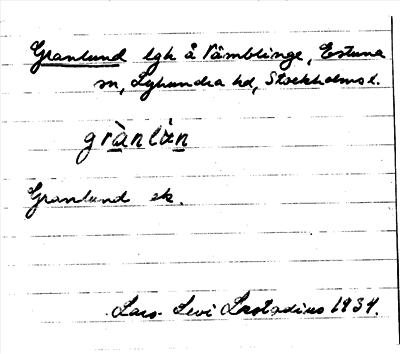 Granlund lgh å Vämblinge, Estuna
sn, Lyhundra hd, Stockholms l.
grànlùn
Granlund ek.
Lars Levi Læstadius 1934.